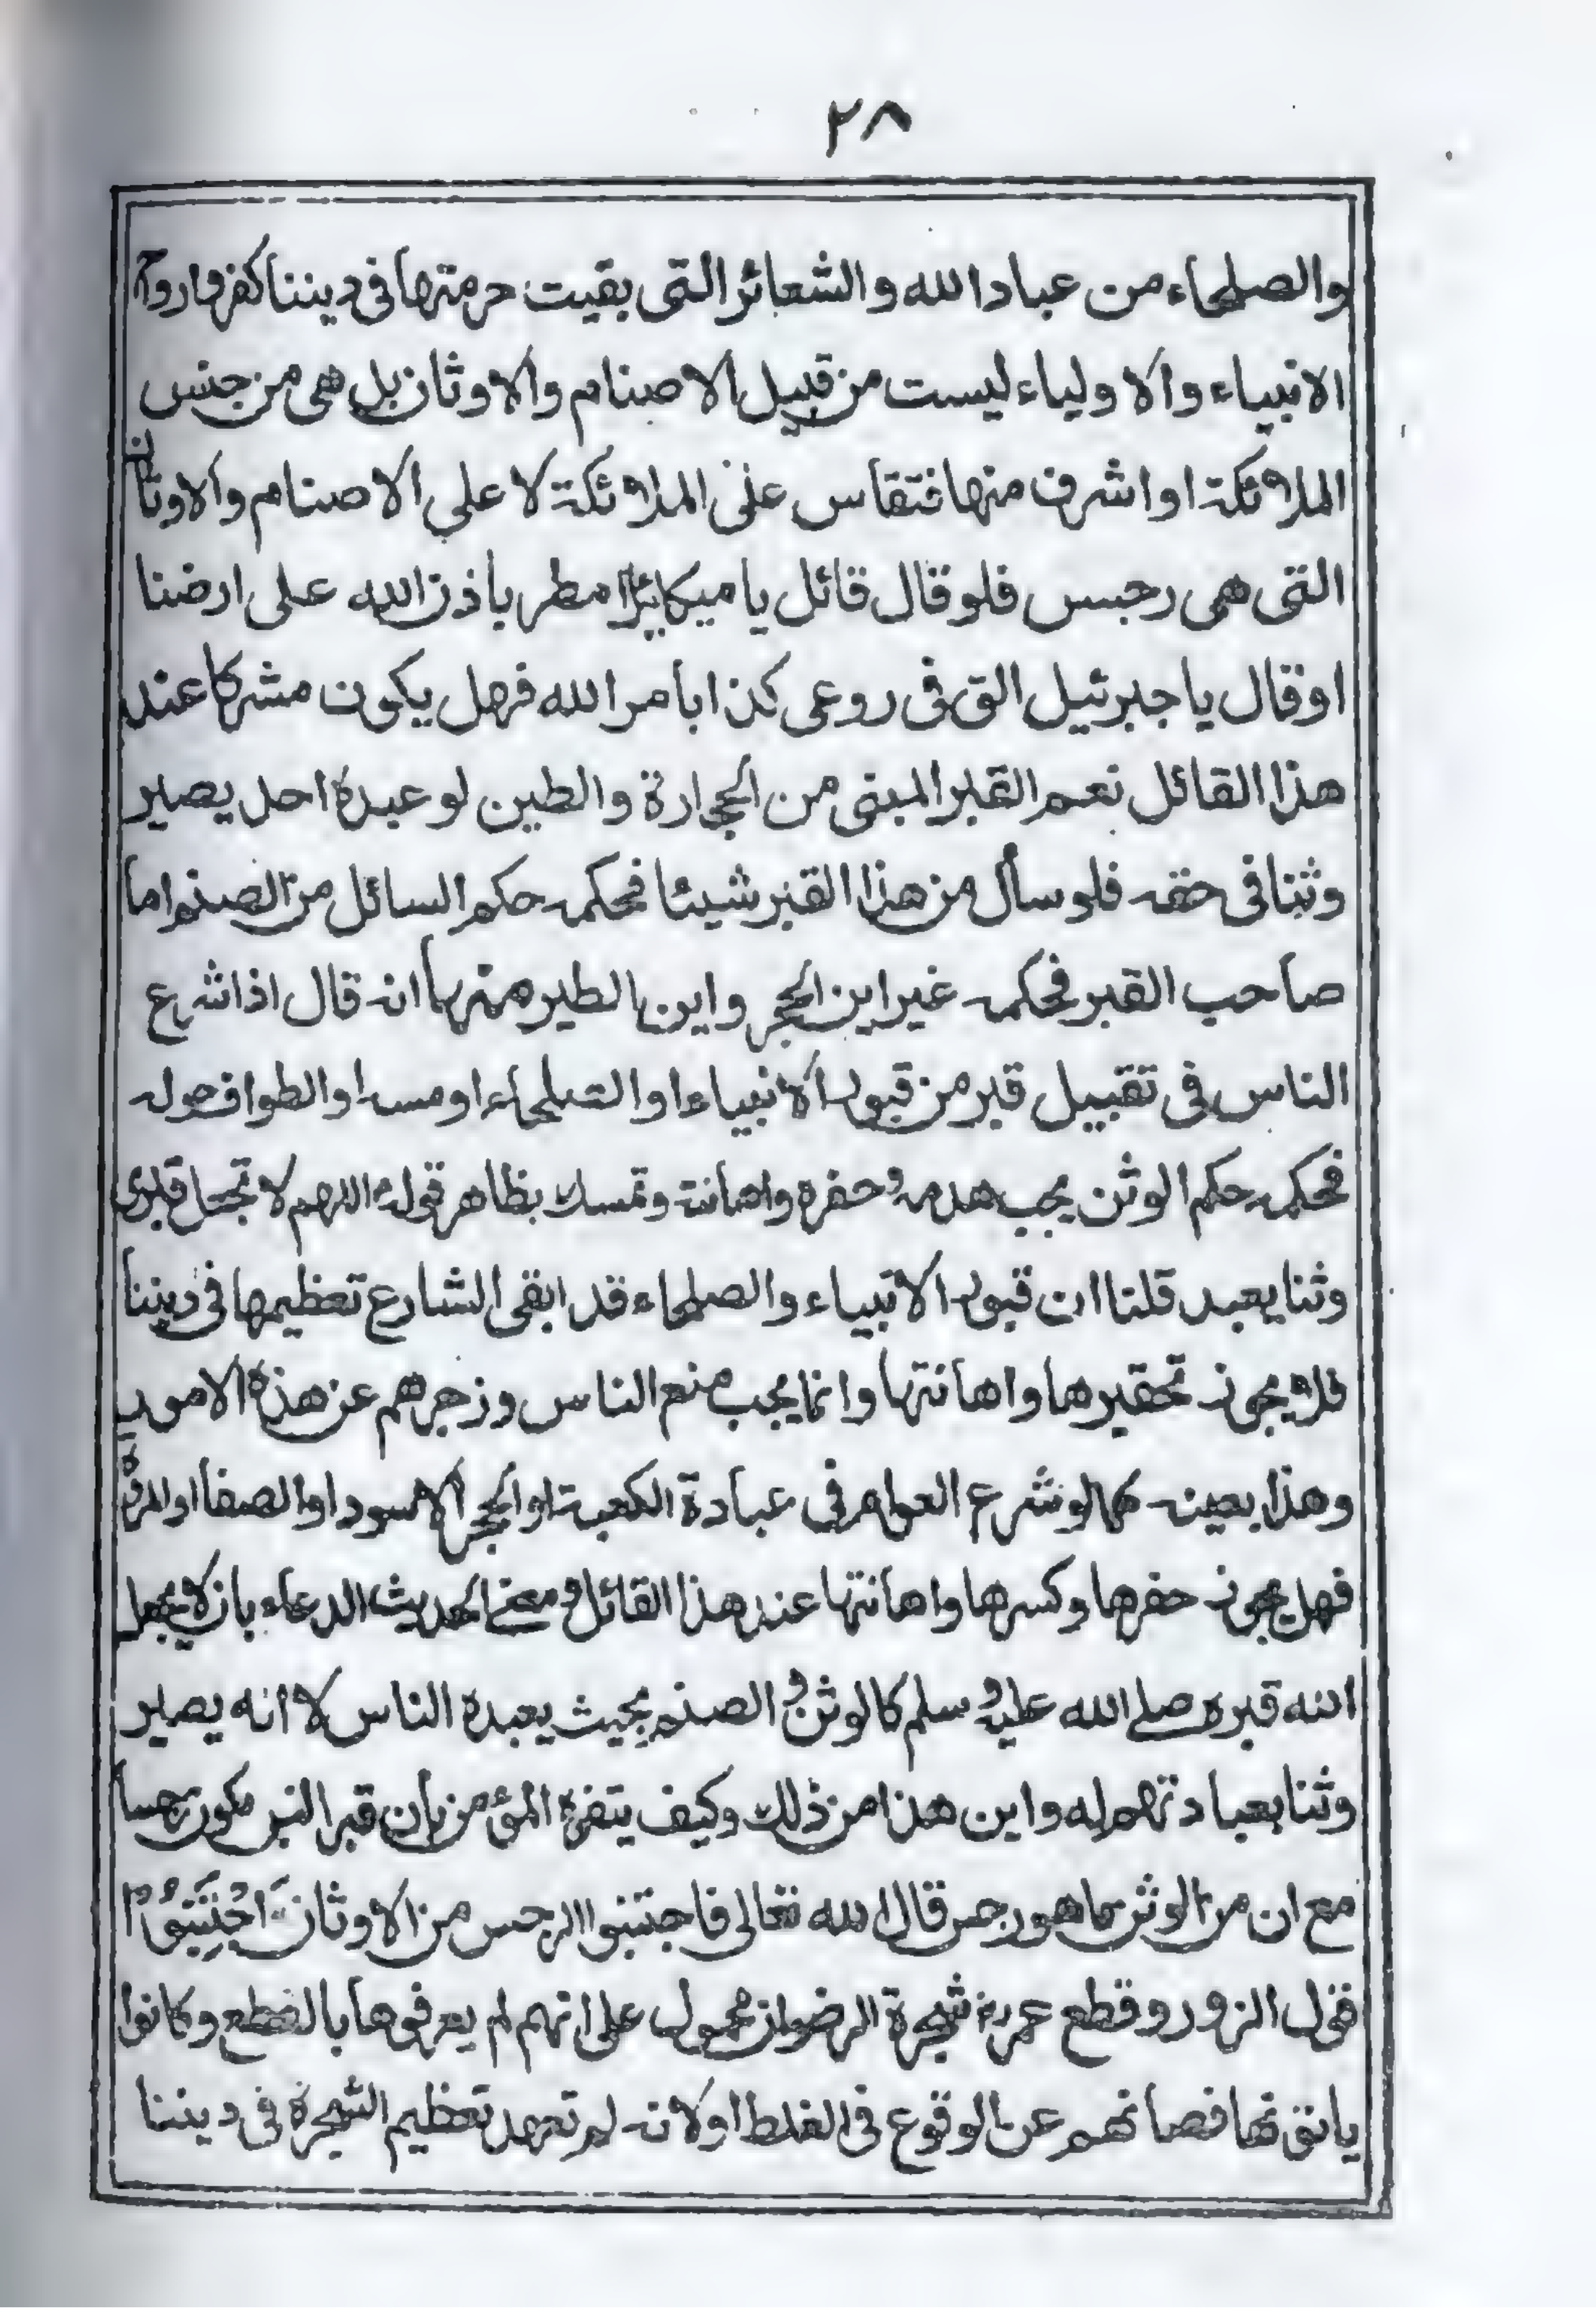 ٢٨
والصلحاء من عباد الله والشعائر التى بقيت حرمتها فى ديننا كفر وارواح
الانبياء والاولياء ليست من قبيل الاصنام والاوثان بل هى من جنس
الملائكة او اشرف منها فتقاس على الملائكة لا على الاصنام والاوثان
التى هى رجس فلو قال قائل يا ميكائيل امطر بأذن الله على ارضنا
او قال يا جبرئيل الق فى روعى كذا بامر الله فهل يكون مشركا عند
هذا القائل نعم القبر المبنى من الحجارة والطين لو عبده احد يصير
وثنا فى حقه فلو سأل من هذا القبر شيئا فحكمه حكم السائل من الصنم اما
صاحب القبر فحكمه غير اين الحجر واين الطير ومنها انه قال اذا شرع
الناس فى تقبيل قبر من قبور الانبياء او الصلحاء او مسه او الطواف حوله
فحكمه حكم الوثن يجب هدمه وحفره واهانته وتمسك بظاهر قوله اللهم لا تجعل قبرى
وثنا يعبد قلنا ان قبور الانبياء والصلحاء قد ابقى الشارع تعظيمها فى ديننا
فلا يجوز تحقيرها واهانتها وانما يجب منع الناس وزجرهم عن هذه الامور
وهذا بعينه كما لو شرع العوام فى عبادة الكعبة او الحجر الاسود او الصفا او المروة
فهل يجوز حفرها وكسرها واهانتها عند هذا القائل ومعنى الحديث الدعاء بان لا يجعل
الله قبره صلے الله عليه وسلم كالوثن والصنم بحيث يعبده الناس لا انه يصير
وثنا بعبادتهم له واين هذا من ذلك وكيف يتفوه المؤمن بأن قبر النبى يكون رجسا
مع ان من الوثن ما هو رجس قال الله تعالى فاجتنبوا الرجس من الاوثان وَاجْتَنِبُوْا
قول الزور وقطع عمر رض شجرة الرضوان محمول على انهم لم يعرفوها بالقطع وكانوا
يأتونها فصانهم عن الوقوع فى الغلط او لانه لم تعهد تعظيم الشجرة فى ديننا